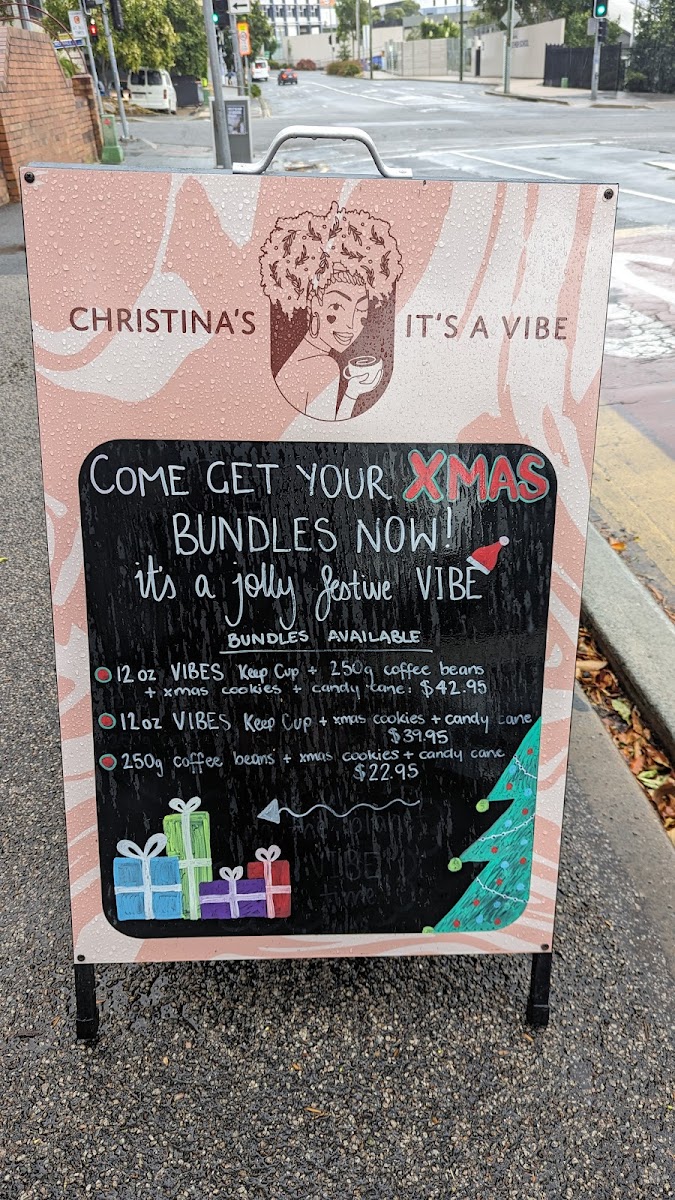 CHRISTINA'S IT'S A VIBE
COME GET YOUR XMAS
BUNDLES NOW!
it's a jolly festive VIBE
BUNDLES AVAILABLE
12oz VIBES Keep Cup + 250g coffee beans
+ xmas cookies + candy cane: $42.95
12oz VIBES Keep Cup + xmas cookies + candy cane
$39.95
250g coffee beans + xmas cookies + candy cane
$22.95
VIBE
time